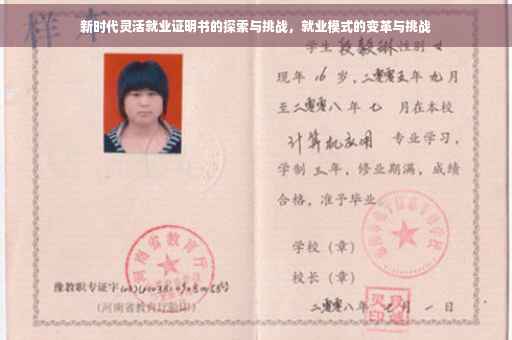 新时代灵活就业证明书的探索与挑战，就业模式的变革与挑战
样本
学生段毅琳性别女
现年16岁，二零零五年九月
至二零零八年七月在本校
计算机应用专业学习，
学制三年，修业期满，成绩
合格，准予毕业
学校（章）
校长（章）
二零零八年七月一日
河南省教育厅
豫教职专证字
（河南省教育厅验印）